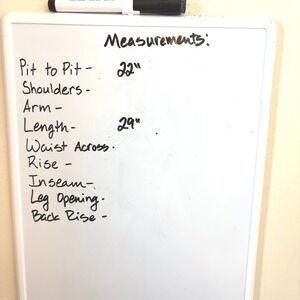 Measurements:
Pit to Pit - 22"
Shoulders -
Arm -
Length - 29"
Waist Across.
Rise -
Inseam -
Leg Opening.
Back Rise -